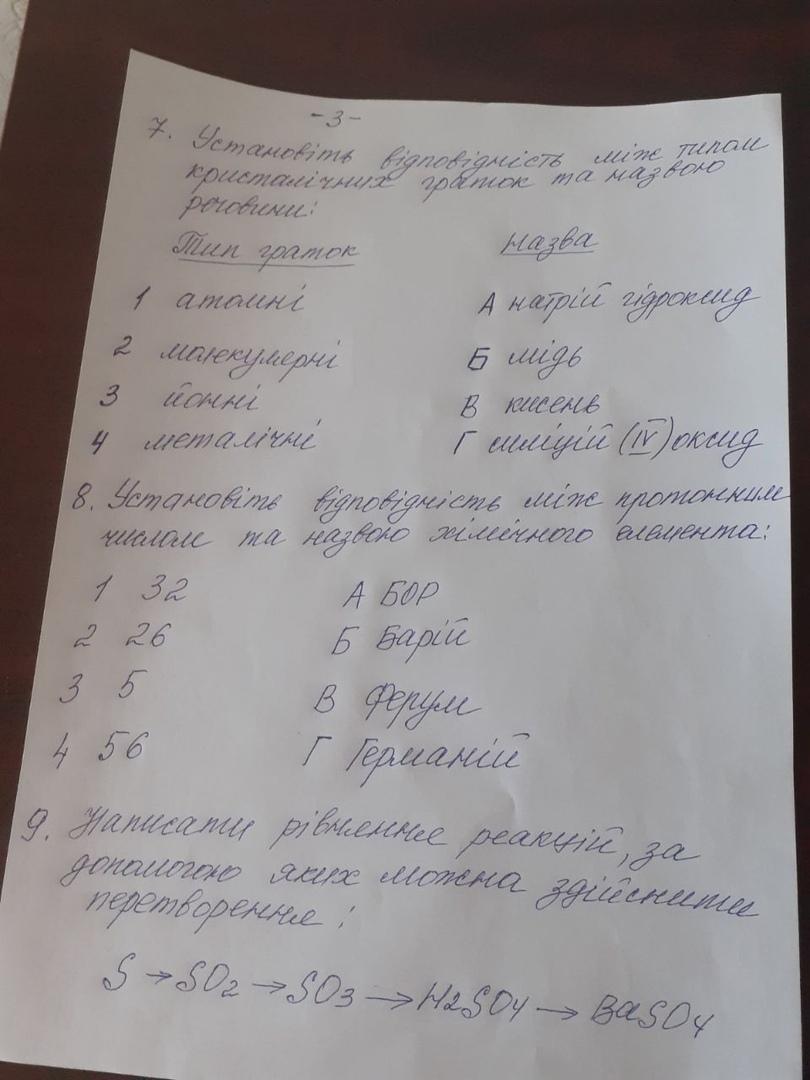 -3-
7. Установіть відповідність між типом
кристалічних граток та назвою
речовини:
Тип граток Назва
1 атомні А натрій гідроксид
2 молекулярні Б мідь
3 йонні В кисень
4 металічні Г силіцій (IV) оксид
8. Установіть відповідність між протонним
числом та назвою хімічного елемента:
1 32 А БОР
2 26 Б Барій
3 5 В Ферум
4 56 Г Германій
9. Написати рівняння реакцій, за
допомогою яких можна здійснити
перетворення:
S → SO2 → SO3 → H2SO4 → BaSO4